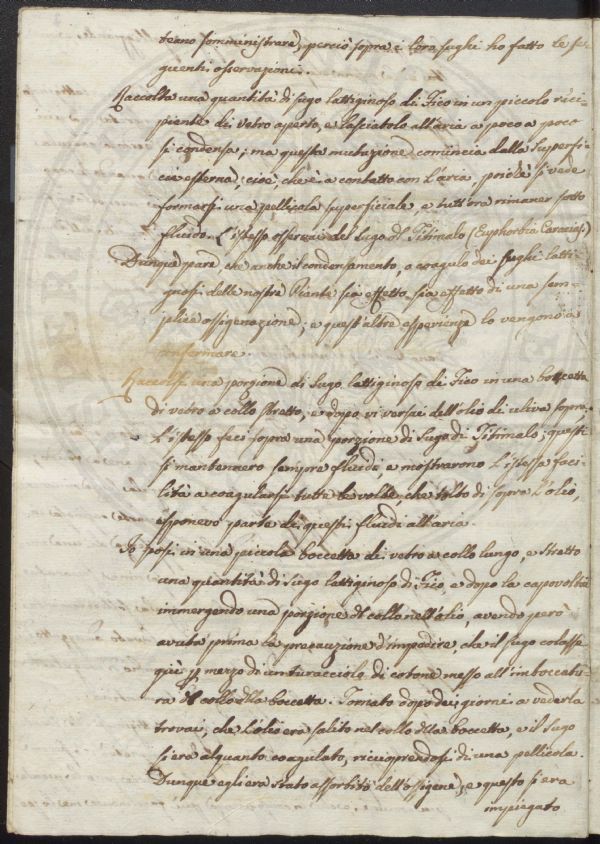 terno somministrare, perciò sopra i loro sughi ho fatto le se-
guenti osservazioni.
Raccolta una quantità di sugo lattiginoso di Fico in un piccolo reci-
piente di vetro aperto, e lasciatolo all'aria a poco a poco
si condensa; ma questa mutazione comincia dalla superfi-
cie esterna, cioè, che è a contatto con l'aria, poichè si vede
formarsi una pellicola superficiale, e tutt'ora rimaner sotto
fluido. L'istesso osservai del Sugo dl Titimalo (Euphorbia Caracias.)
Dunque pare, che anche il condensamento, o coagulo dei sughi latti-
ginosi delle nostre Piante sia effetto, sia effetto di una sem-
plice ossigenazione; e quest'altre esperienze lo vengono a
confermare.
Raccolsi una porzione di Sugo lattiginoso di Fico in una boccetta
di vetro a collo stretto, e dopo vi versai dell'olio di uliva sopra.
L'istesso feci sopra una porzione di Sugo di Titimalo; questi
si mantennero sempre fluidi, e mostrarono l'istessa faci-
lità a coagularsi tutte le volte, che tolto di sopra l'olio,
esponevo parte di questi fluidi all'aria.
Io posi in una piccola boccetta di vetro a collo lungo, e stretto
una quantità di sugo lattiginoso di Fico, e dopo la capovoltai
immergendo una porzione dl collo nell'olio, avendo però
avuta prima la precauzione d'impedire, che il sugo colasse
giù p mezzo di un turacciolo di cotone messo all'imboccatu-
ra dl collo dlla boccetta. Tornato dopo dei giorni a vederla
trovai, che l'olio era salito nel collo dlla boccetta, e il Sugo
si era alquanto coagulato, ricuoprendosi di una pellicola.
Dunque egli era stato assorbito dell'ossigene, e questo si era
impiegato